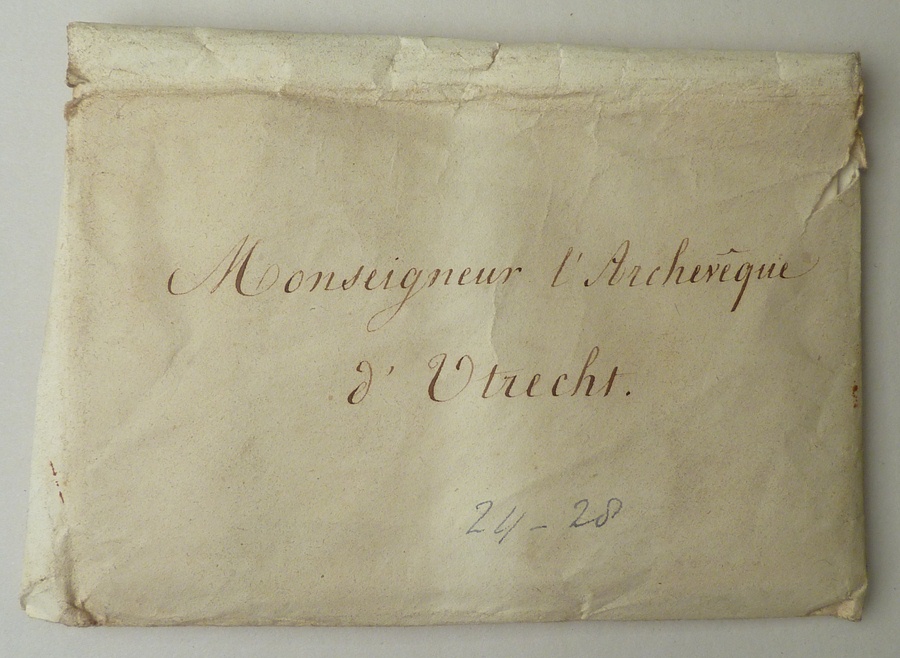 Monseigneur l'Archevêque
d'Utrecht.
24-28